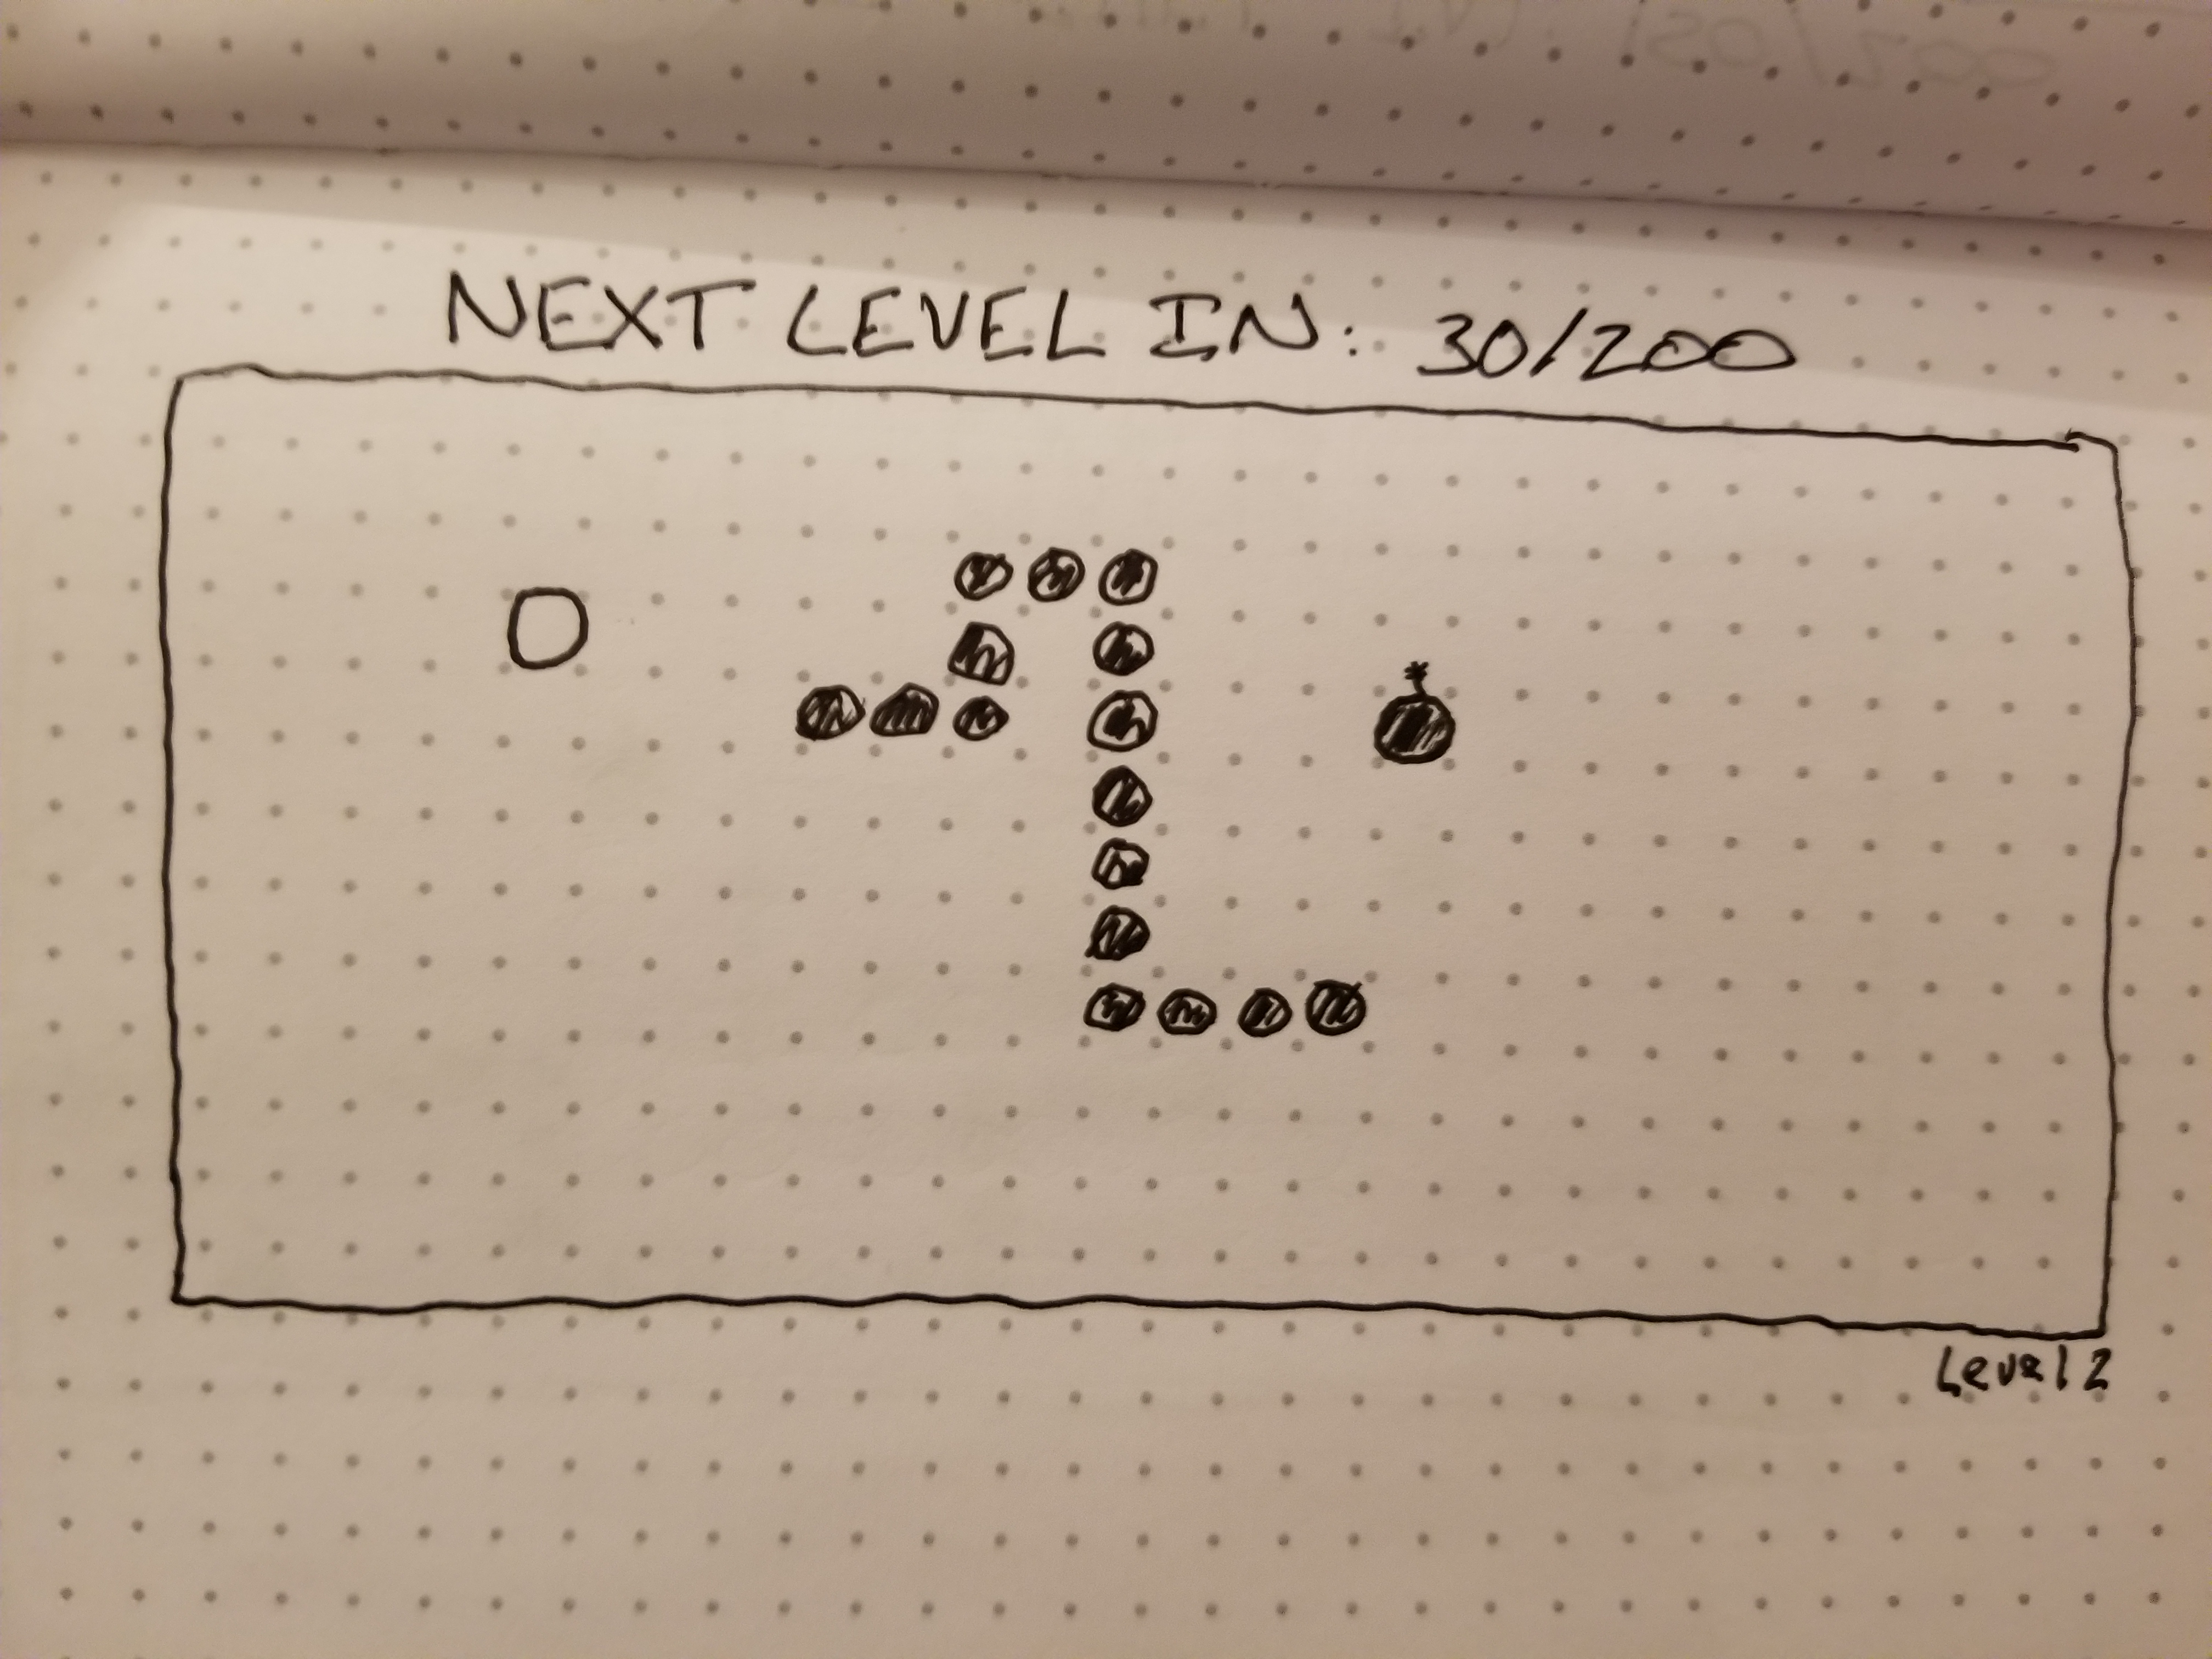 NEXT LEVEL IN: 30/200
Level 2